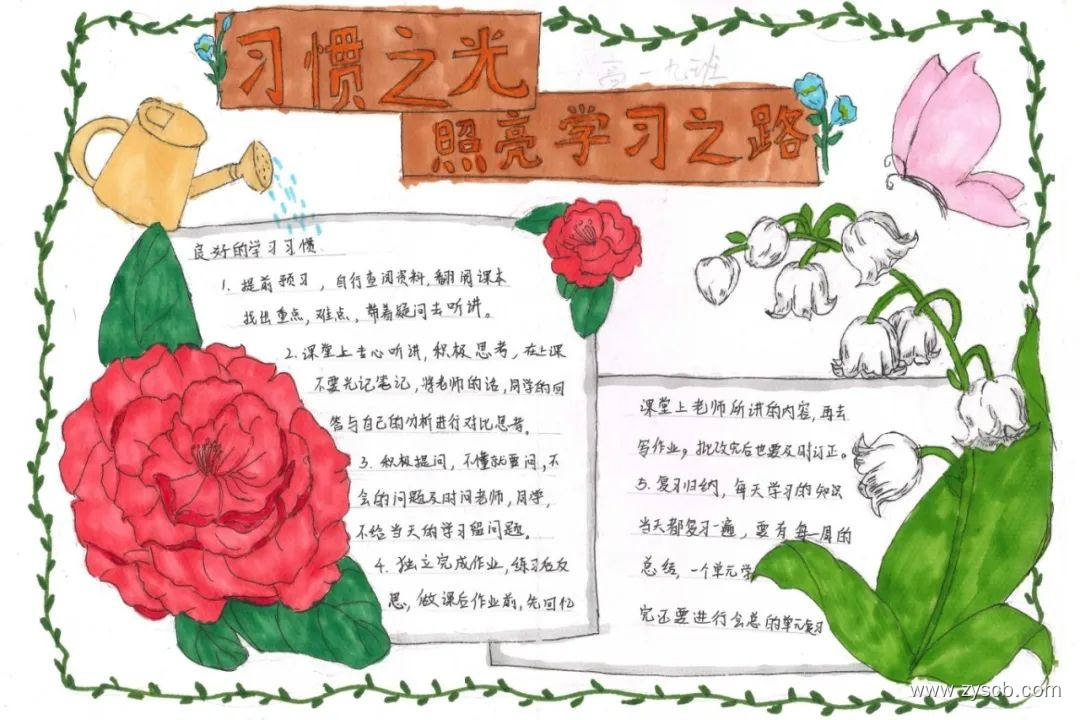 习惯之光
高一九班
照亮学习之路
良好的学习习惯
1. 提前预习，自行查阅资料，翻阅课本
找出重点，难点，带着疑问去听讲。
2. 课堂上专心听讲，积极思考，在上课
不要光记笔记，将老师的话，同学的回
答与自己的分析进行对比思考。
3. 积极提问，不懂就要问，不
会的问题及时问老师，同学，
不给当天的学习留问题。
4. 独立完成作业，练习后反
思，做课后作业前，先回忆
课堂上老师所讲的内容，再去
写作业，批改完后也要及时订正。
5. 复习归纳，每天学习的知识
当天都复习一遍，要有每一周的
总结，一个单元学
完还要进行会总的单元复习
www.zyscb.com